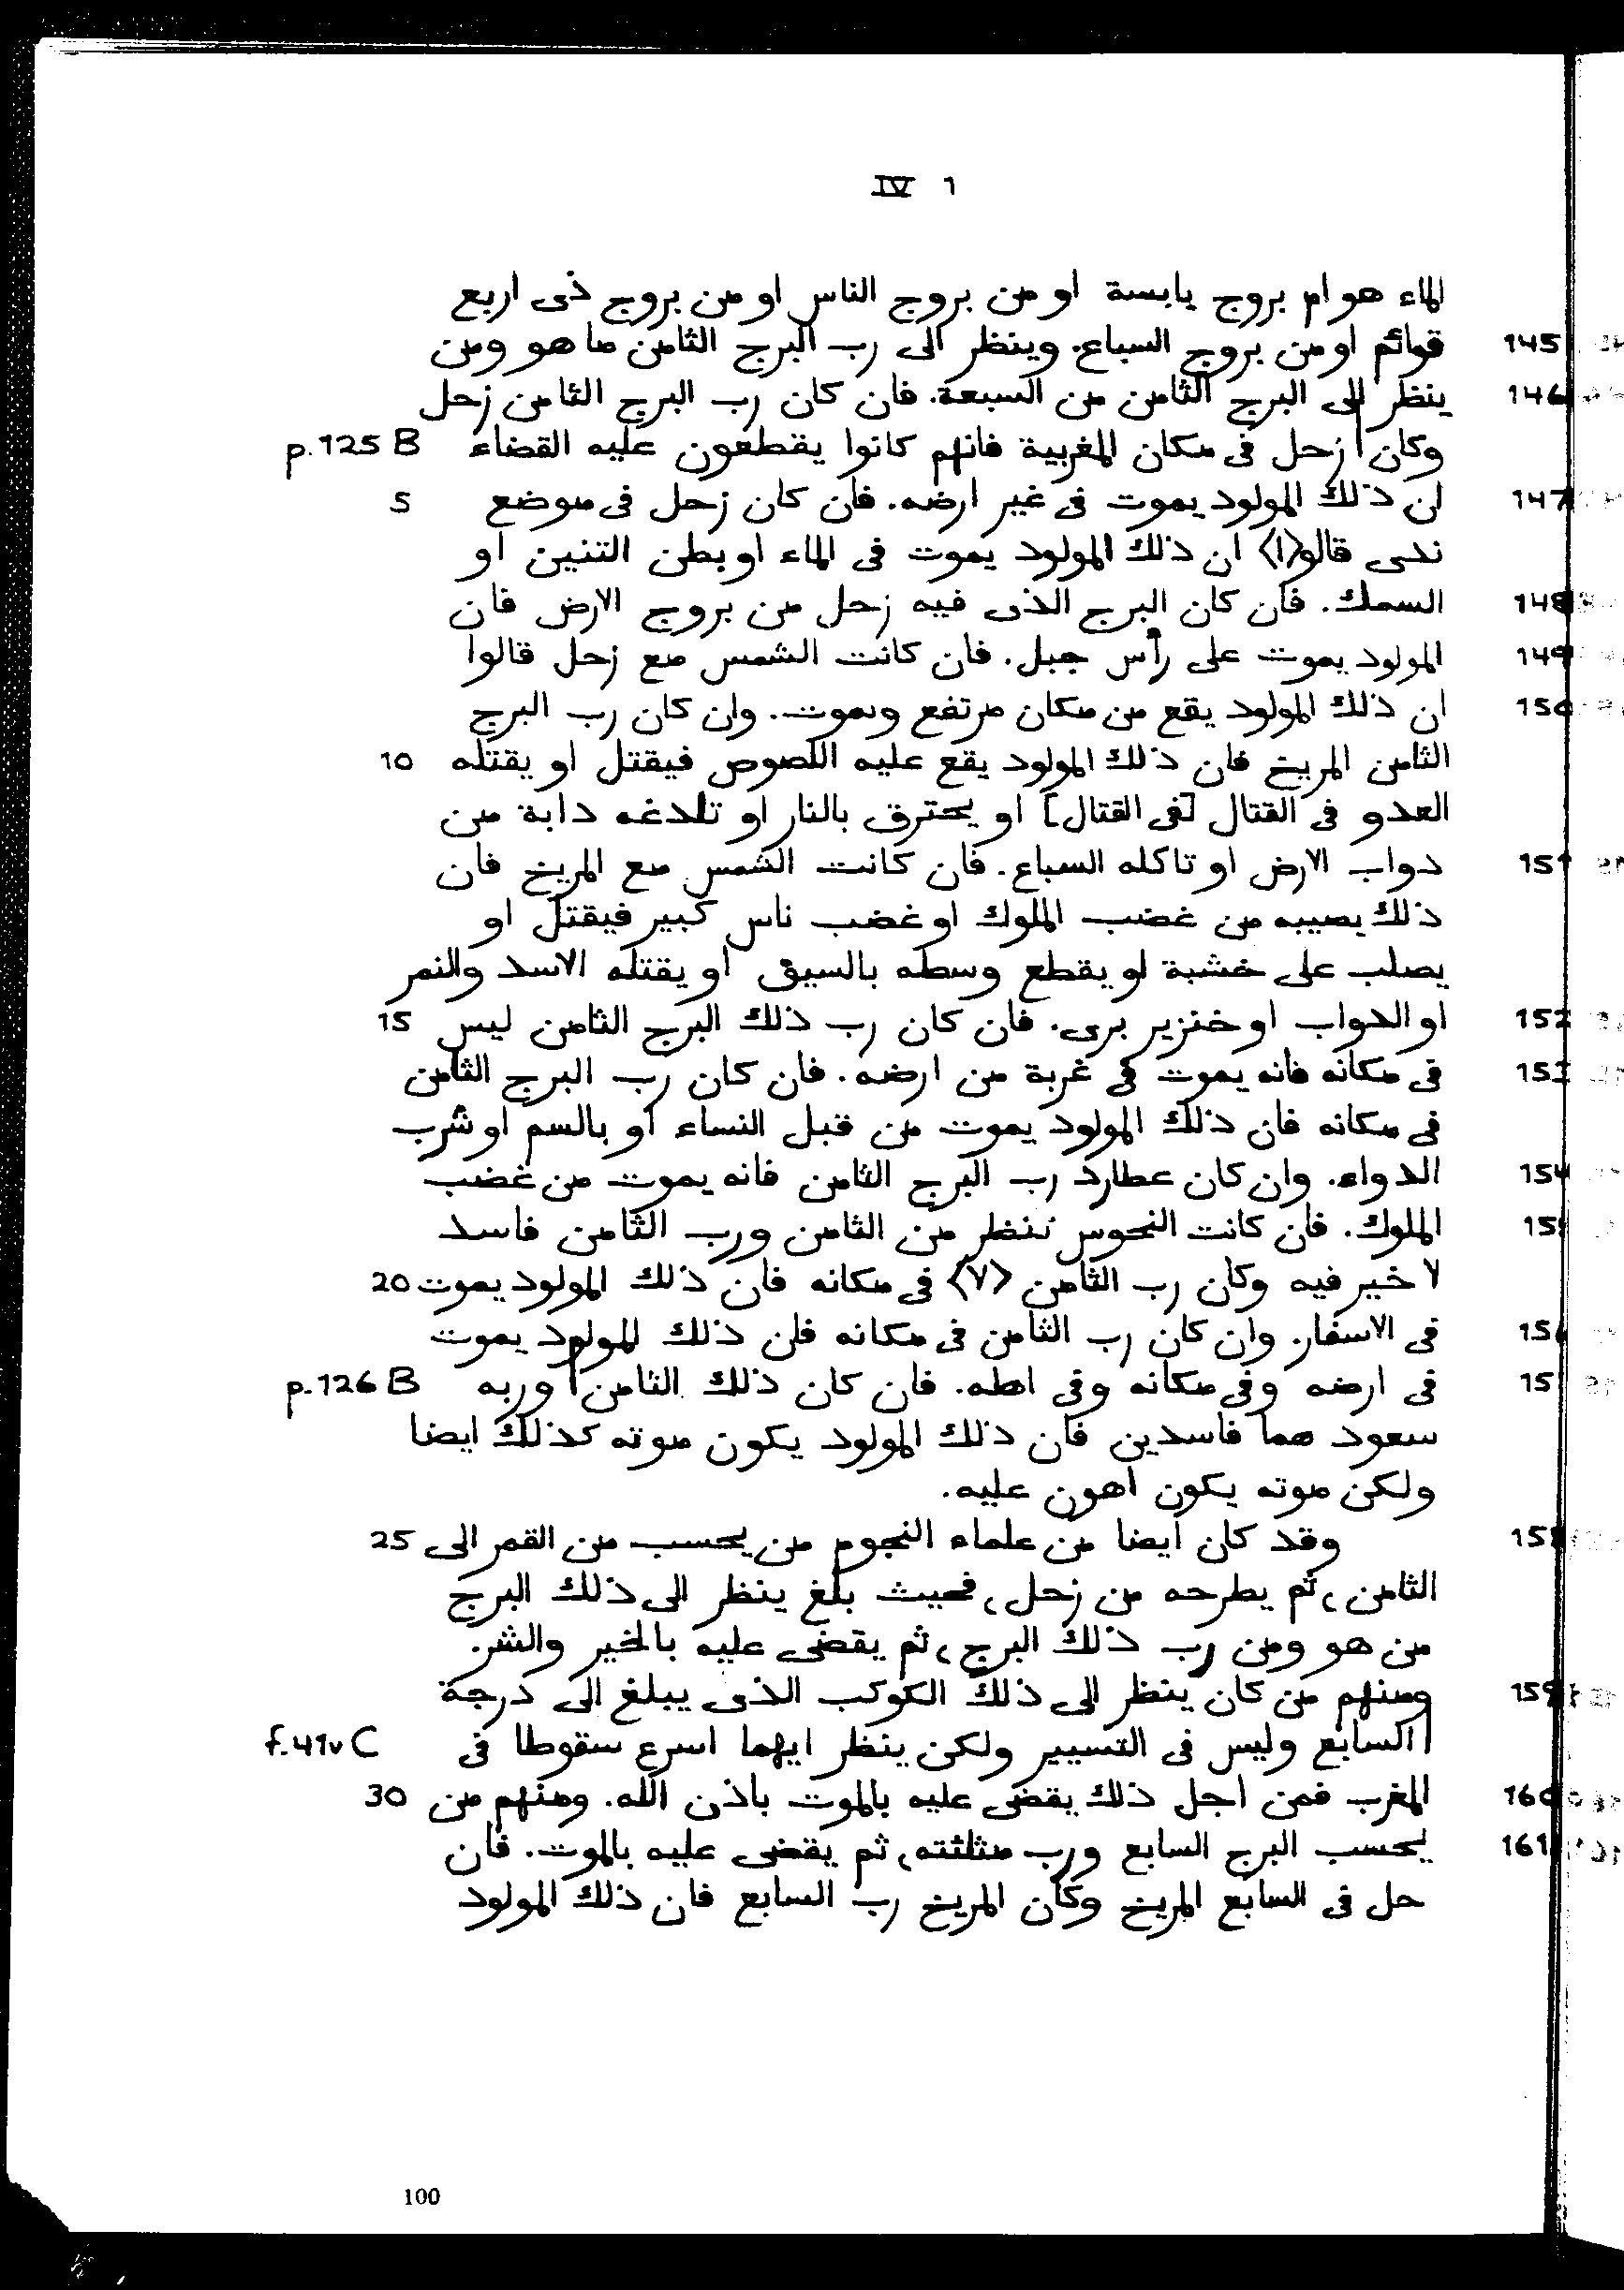 IV 1
الماء هو ام بروج يابسة او من بروج الناس او من بروج ذى اربع
قوائم او من بروج السباع. وينظر الى رب البرج الثامن ما هو ومن 145
ينظر الى البرج الثامن من السبعة. فان كان رب البرج الثامن زحل 146
وكان | زحل فى مكان المغربية فانهم كانوا يقطعون عليه القضاء p.125 B
ان ذلك المولود يموت فى غير ارضه. فان كان زحل فى موضع 147 5
ندى قالو<ا> ان ذلك المولود يموت فى الماء او بطن التنين او
السمك. فان كان البرج الذى فيه زحل من بروج الارض فان 148
المولود يموت على رأس جبل. فان كانت الشمس مع زحل قالوا 149
ان ذلك المولود يقع من مكان مرتفع ويموت. وان كان رب البرج 150
الثامن المريخ فان ذلك المولود يقع عليه اللصوص فيقتل او يقتله 10
العدو فى القتال [فى القتال] او يحترق بالنار او تلدغه دابة من
دواب الارض او تاكله السباع. فان كانت الشمس مع المريخ فان 151
ذلك يصيبه من غضب الملوك او غضب ناس كبير فيقتل او
يصلب على خشبة او يقطع وسطه بالسيق او يقتله الاسد والنمر
او الدواب او خنزير برى. فان كان رب ذلك البرج الثامن ليس 152 15
فى مكانه فانه يموت فى غربة من ارضه. فان كان رب البرج الثامن 153
فى مكانه فان ذلك المولود يموت من قبل النساء او بالسم او شرب
الدواء. وان كان عطارد رب البرج الثامن فانه يموت من غضب 154
الملوك. فان كانت النحوس تنظر من الثامن ورب الثامن فاسد 155
لا خير فيه وكان رب الثامن <لا> فى مكانه فان ذلك المولود يموت 20
فى الاسفار. وان كان رب الثامن فى مكانه فان ذلك المولود يموت 156
فى ارضه وفى مكانه وفى اهله. فان كان ذلك الثامن | وربه 157 p.126 B
سعود هما فاسدين فان ذلك المولود يكون موته كذلك ايضا
ولكن موته يكون اهون عليه.
وقد كان ايضا من علماء النجوم من يحسب من القمر الى 158 25
الثامن، ثم يطرحه من زحل، فحيث بلغ ينظر الى ذلك البرج
من هو ومن رب ذلك البرج، ثم يقضى عليه بالخير والشر.
ومنهم من كان ينظر الى ذلك الكوكب الذى يبلغ الى درجة 159
| السابع وليس فى التسيير ولكن ينظر ايهما اسرع سقوطا فى f.41v C
المغرب فمن اجل ذلك يقضى عليه بالموت باذن الله. ومنهم من 160 30
يحسب البرج السابع ورب مثلثته، ثم يقضى عليه بالموت. فان 161
حل فى السابع المريخ وكان المريخ رب السابع فان ذلك المولود
100